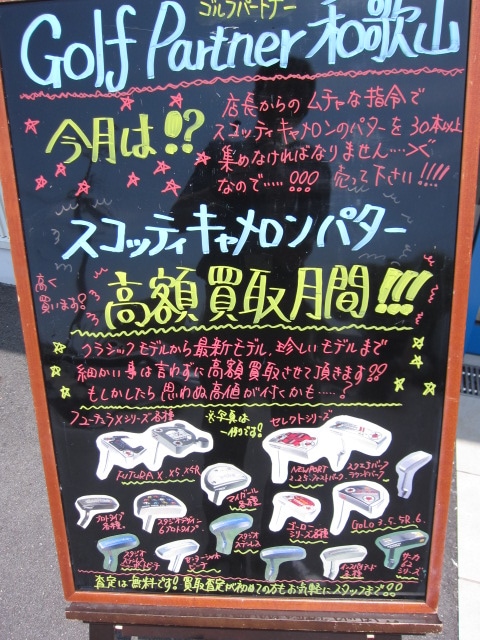 ゴルフパートナー
Golf Partner 和歌山
今月は!?
店長からのムチャな指令で
スコッティキャメロンのパターを30本以上
集めなければなりません……
なので……!!! 売って下さい!!!!
スコッティキャメロンパター
高く
買います!!
高額買取月間!!!
クラシックモデルから最新モデル、珍しいモデルまで
細かい事は言わずに高額買取させて頂きます!!
もしかしたら思わぬ高値が付くかも……?
フューチュラXシリーズ各種
※写真は
一例です!
セレクトシリーズ
FUTURA X, X5, X5R
NEWPORT
マイガール
各種
プロトタイプ
各種
スタジオデザイン
スタジオ
ステンレス
ゴーロー
シリーズ各種
GOLO 3. 5. 5R. 6.
スタジオ
各種
シリーズ
査定は無料です!買取査定が初めての方もお気軽にスタッフまで!!